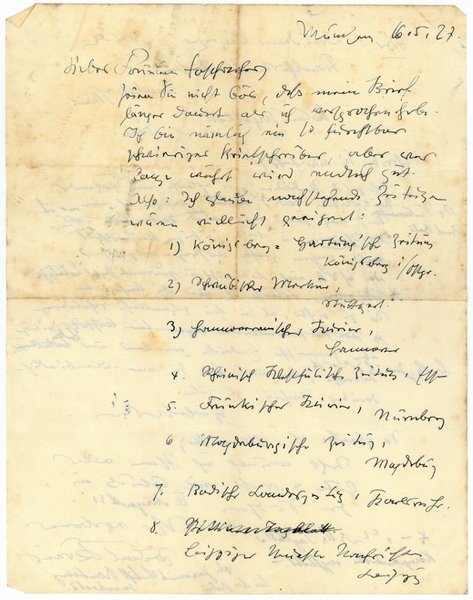 München 16.5.27.
Lieber
seien Sie nicht böse, daß mein Brief
länger dauert als ich versprochen habe.
Ich bin nämlich ein so furchtbar
schwieriger Briefschreiber, aber was
lange währt wird endlich gut.
Also: Ich glaube nachstehende Zeitungen
wären vielleicht geeignet:
1) Königsberg= Hartung'sche Zeitung
Königsberg i/Opr.
2) Schwäbischer Merkur,
Stuttgart.
3) Hannoverscher Kurier,
Hannover
4. Rheinisch Westfälische Zeitung, Essen
5. Fränkischer Kurier, Nürnberg
6 Magdeburgische Zeitung,
Magdeburg
7. Badische Landeszeitung, Karlsruhe.
8.
Leipziger Neueste Nachrichten
Leipzig